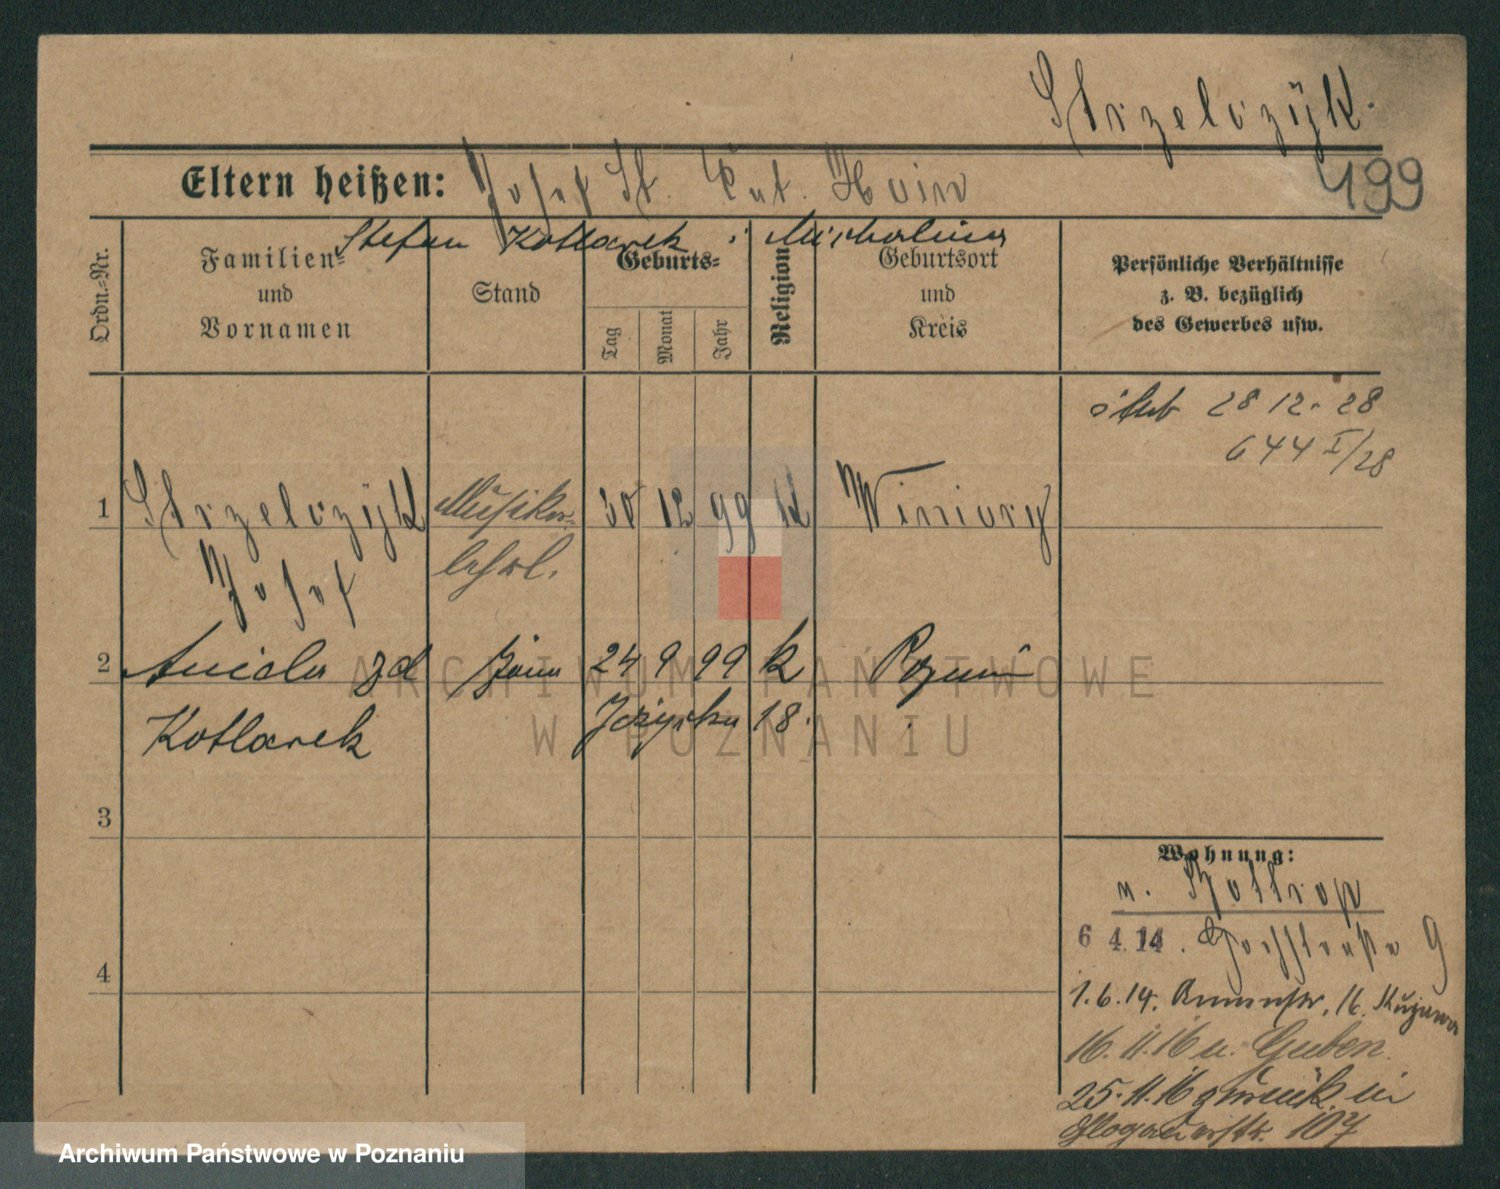 Strzelczÿk.
499
Eltern heißen: Josef St. Kat. Hain
Stefan Kotlarek i Michalina
Ordn.-Nr.
Familien- und Vornamen
Stand
Geburts-
Tag
Monat
Jahr
Religion
Geburtsort und Kreis
Persönliche Verhältnisse
z. B. bezüglich
des Gewerbes usw.
ślub 28 12. 28
644 I/28
1 Strzelczÿk Musiker- 30 12 99 k Winiary
Josef lehrl.
2 Aniela zd żona 24 9 99 k Poznań
Kotlarek Jeżycka 18.
3
4
Wohnung:
v. Bottrop
6 4. 14. Hochstraße 9
1.6.14. 16.
16.11.16 n. Guben.
25.11.16 zurück in
Glogauerstr. 107
ARCHIWUM PAŃSTWOWE
W POZNANIU
Archiwum Państwowe w Poznaniu